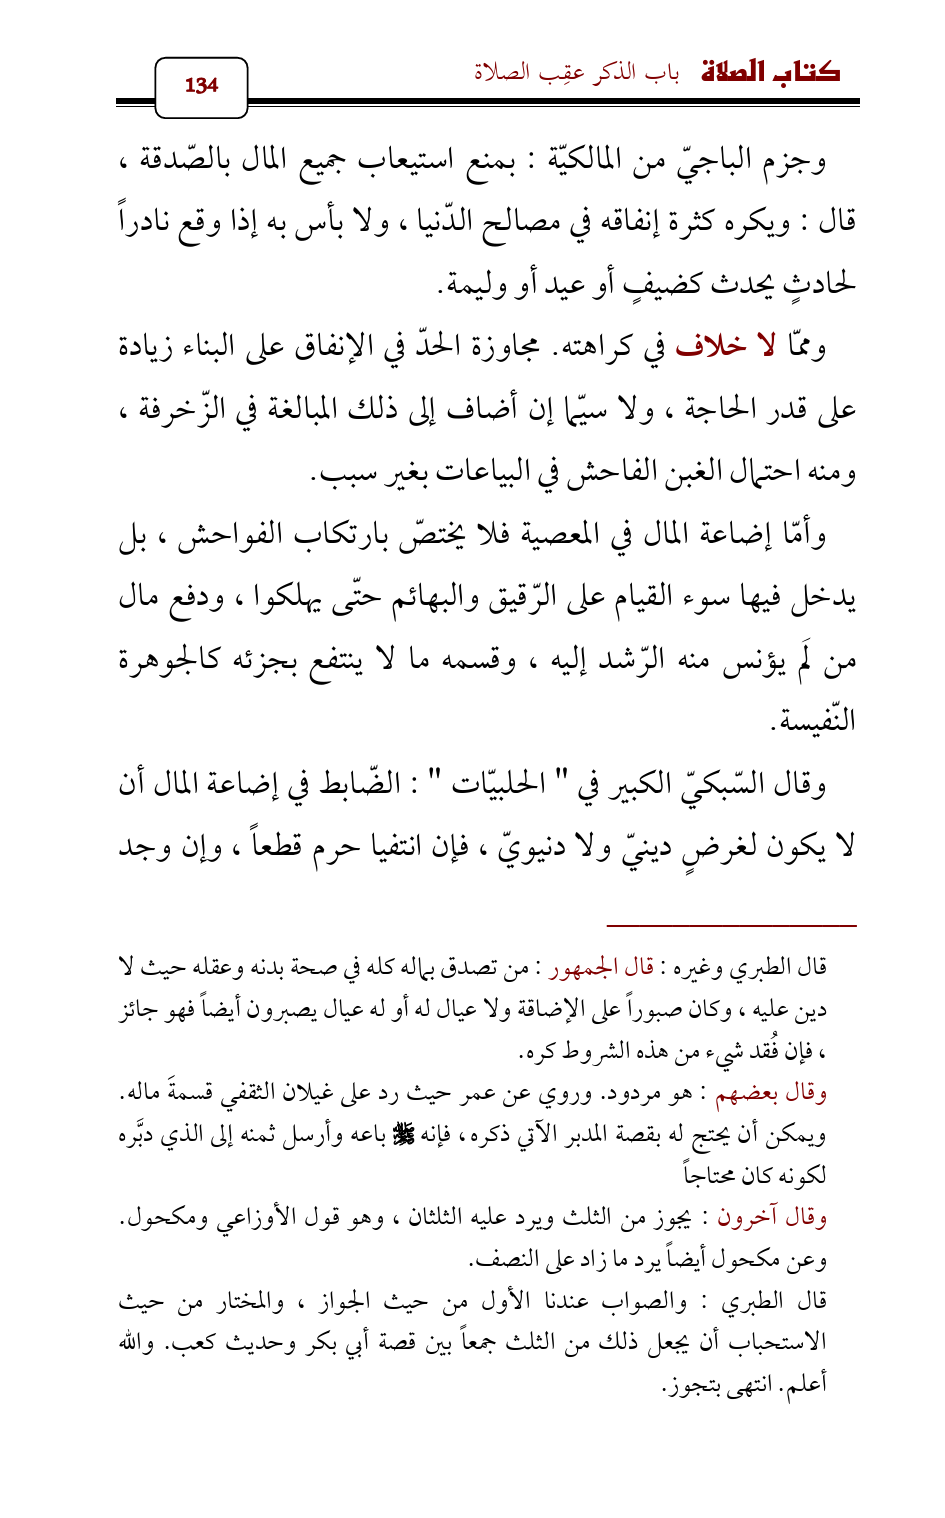 كتاب الصلاة باب الذكر عقِب الصلاة
134
وجزم الباجيّ من المالكيّة : بمنع استيعاب جميع المال بالصّدقة ،
قال : ويكره كثرة إنفاقه في مصالح الدّنيا ، ولا بأس به إذا وقع نادراً
لحادثٍ يحدث كضيفٍ أو عيد أو وليمة.
وممّا لا خلاف في كراهته. مجاوزة الحدّ في الإنفاق على البناء زيادة
على قدر الحاجة ، ولا سيّما إن أضاف إلى ذلك المبالغة في الزّخرفة ،
ومنه احتمال الغبن الفاحش في البياعات بغير سبب.
وأمّا إضاعة المال في المعصية فلا يختصّ بارتكاب الفواحش ، بل
يدخل فيها سوء القيام على الرّقيق والبهائم حتّى يهلكوا ، ودفع مال
من لَم يؤنس منه الرّشد إليه ، وقسمه ما لا ينتفع بجزئه كالجوهرة
النّفيسة.
وقال السّبكيّ الكبير في " الحلبيّات " : الضّابط في إضاعة المال أن
لا يكون لغرضٍ دينيّ ولا دنيويّ ، فإن انتفيا حرم قطعاً ، وإن وجد
قال الطبري وغيره : قال الجمهور : من تصدق بماله كله في صحة بدنه وعقله حيث لا
دين عليه ، وكان صبوراً على الإضاقة ولا عيال له أو له عيال يصبرون أيضاً فهو جائز
، فإن فُقد شيء من هذه الشروط كره.
وقال بعضهم : هو مردود. وروي عن عمر حيث رد على غيلان الثقفي قسمةَ ماله.
ويمكن أن يحتج له بقصة المدبر الآتي ذكره، فإنه ﷺ باعه وأرسل ثمنه إلى الذي دبَّره
لكونه كان محتاجاً
وقال آخرون : يجوز من الثلث ويرد عليه الثلثان ، وهو قول الأوزاعي ومكحول.
وعن مكحول أيضاً يرد ما زاد على النصف.
قال الطبري : والصواب عندنا الأول من حيث الجواز ، والمختار من حيث
الاستحباب أن يجعل ذلك من الثلث جمعاً بين قصة أبي بكر وحديث كعب. والله
أعلم. انتهى بتجوز.